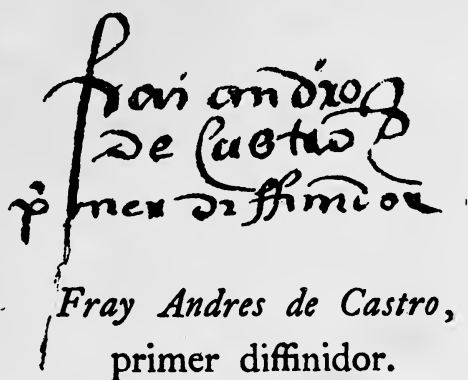 fray andros
de Castro
pº mer diffinidor
Fray Andres de Castro,
primer diffinidor.